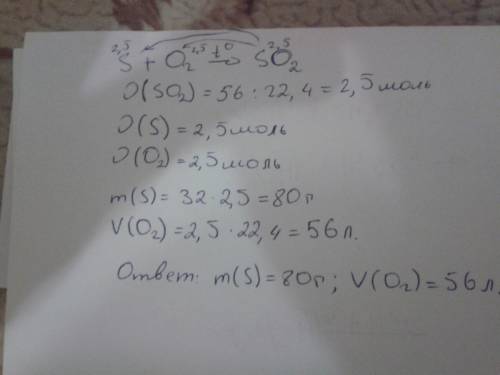 2,5 2,5 t° 2,5
S + O₂ → SO₂
ν(SO₂) = 56 : 22,4 = 2,5 моль
ν(S) = 2,5 моль
ν(O₂) = 2,5 моль
m(S) = 32 · 2,5 = 80 г
V(O₂) = 2,5 · 22,4 = 56 л.
Ответ: m(S) = 80 г; V(O₂) = 56 л.